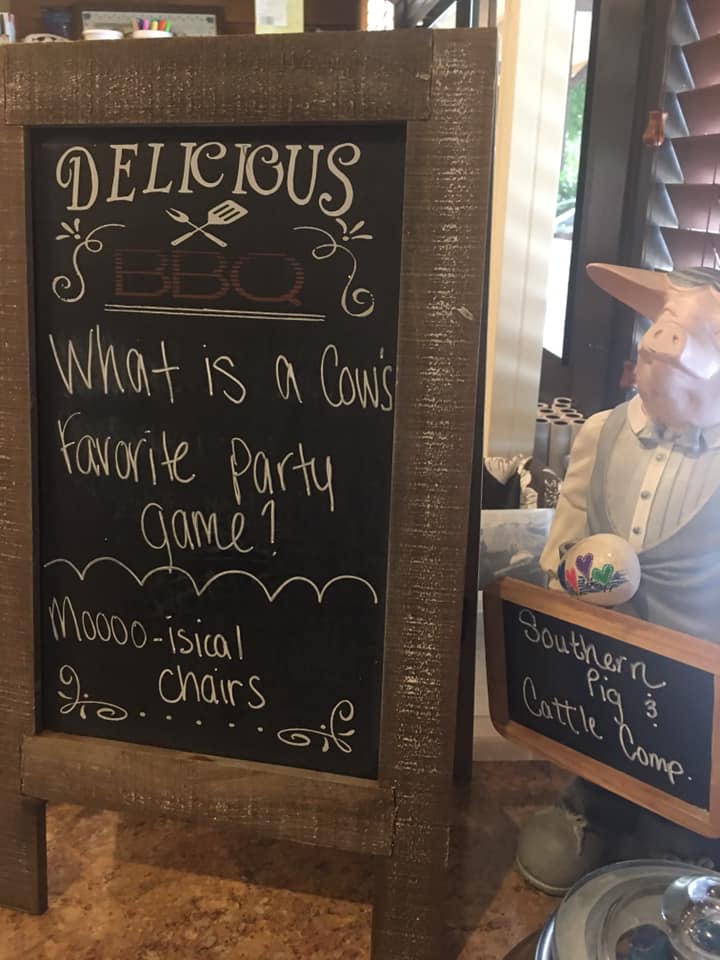 DELICIOUS
BBQ
What is a Cow's
Favorite Party
game?
Moooo-isical
chairs
Southern
Pig &
Cattle Comp.